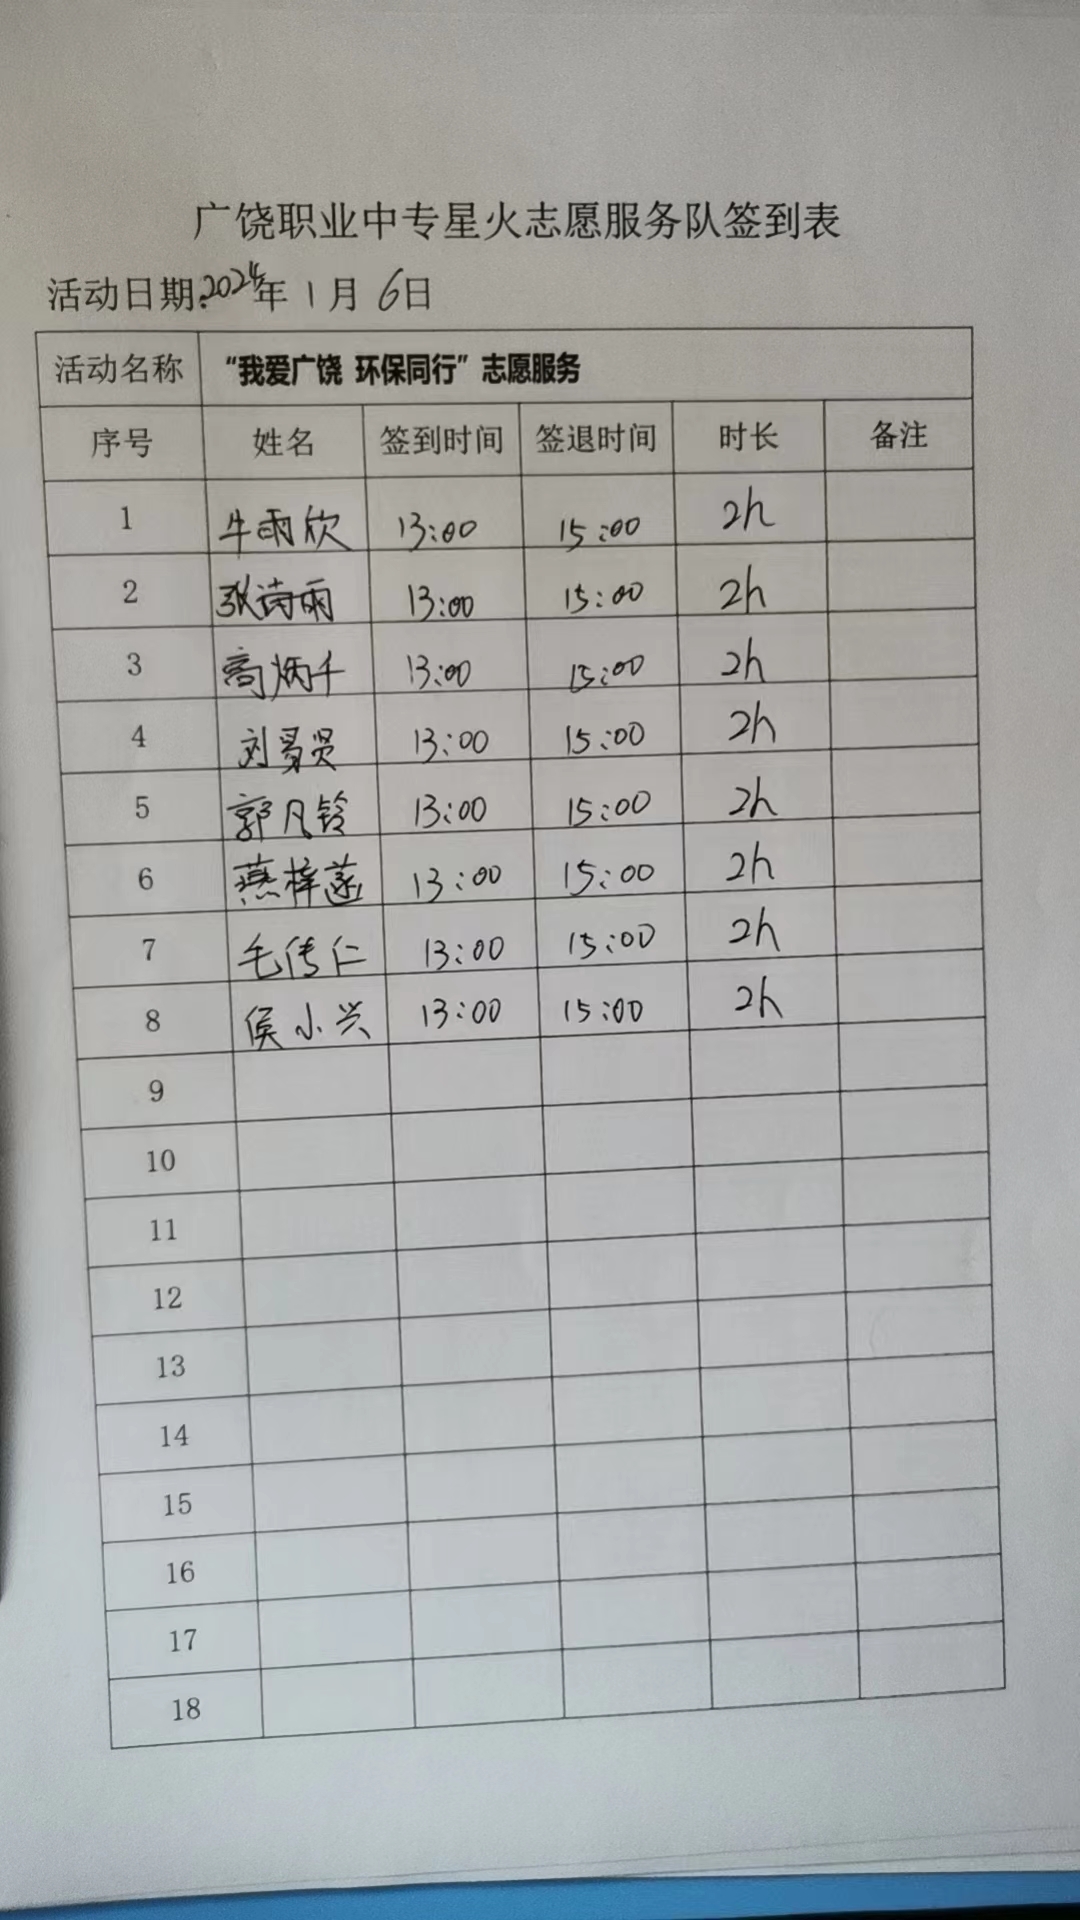 广饶职业中专星火志愿服务队签到表
活动日期:2024年 1月 6日
活动名称 “我爱广饶 环保同行”志愿服务
序号 姓名 签到时间 签退时间 时长 备注
1 牛雨欣 13:00 15:00 2h
2 张诗雨 13:00 15:00 2h
3 高炳千 13:00 15:00 2h
4 刘 贤 13:00 15:00 2h
5 郭凡铃 13:00 15:00 2h
6 燕梓 13:00 15:00 2h
7 毛传仁 13:00 15:00 2h
8 侯小兴 13:00 15:00 2h
9
10
11
12
13
14
15
16
17
18